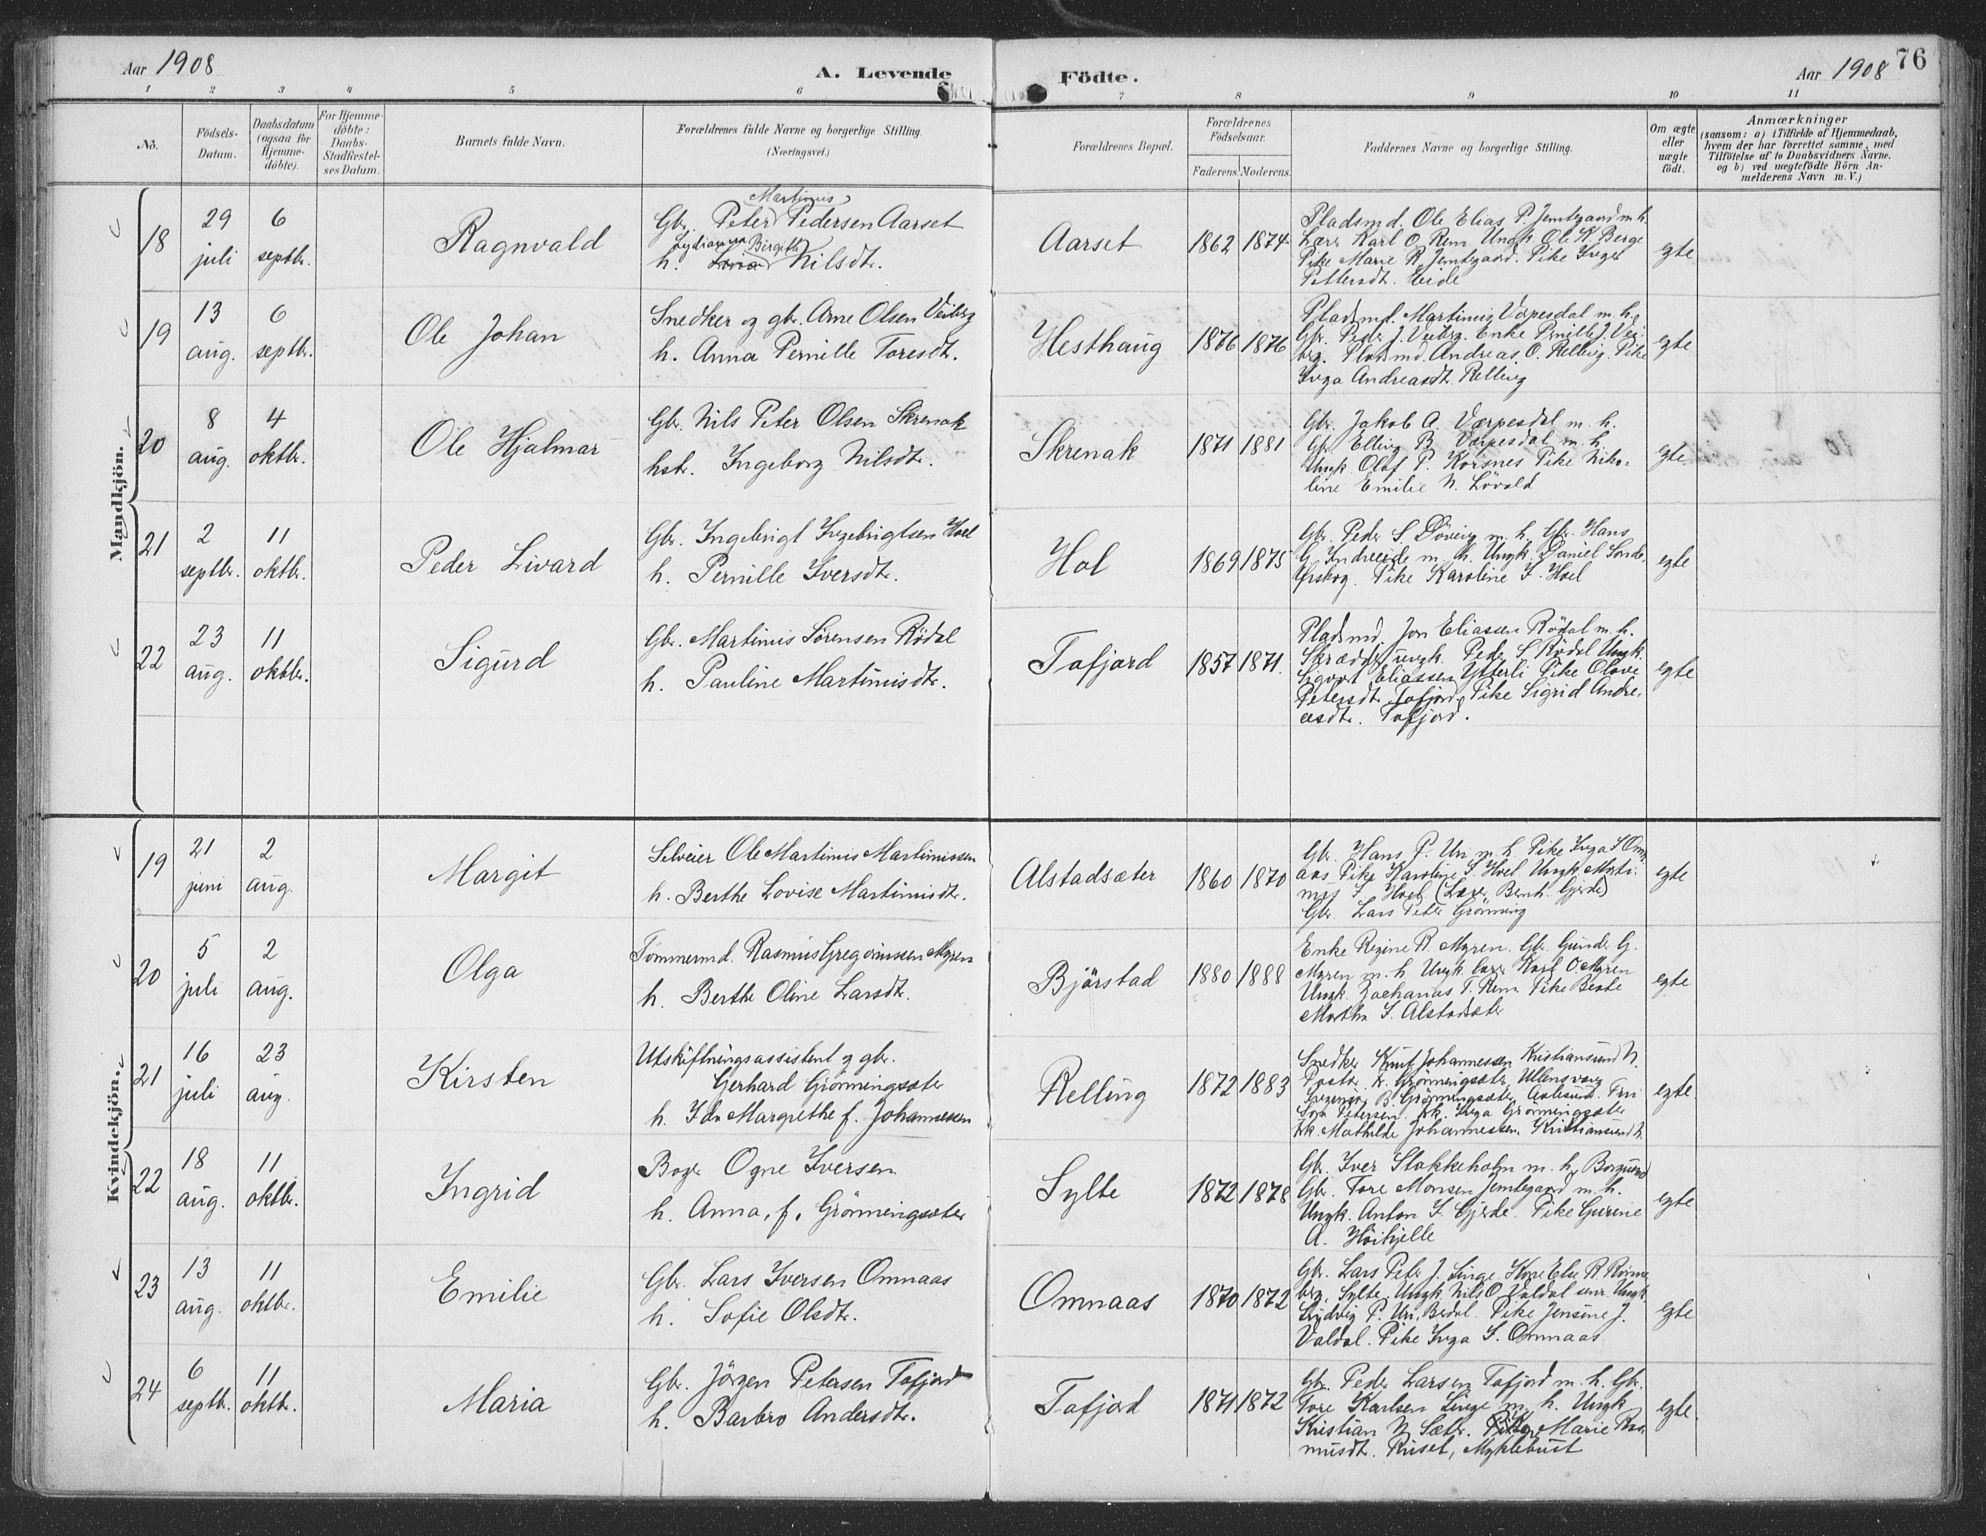 Aar 1908
A. Levende
Födte.
Aar 1908
76
1 2 3 4 5 6 7 8 9 10 11
No.
Födsels-
Datum.
Daabsdatum
(ogsaa for
Hjemme-
döbte).
For Hjemme-
döbte:
Daabs-
Stadfæstel-
ses Datum.
Barnets fulde Navn.
Forældrenes fulde Navne og borgerlige Stilling.
(Næringsvei.)
Forældrenes Bopæl.
Forældrenes
Födselsaar.
Faderens. Moderens.
Faddernes Navne og borgerlige Stilling.
Om ægte
eller
uægte
födt.
Anmærkninger
(saasom: a) i Tilfælde af Hjemmedaab,
hvem der har forrettet samme, med
Tilföielse af to Daabsvidners Navne.
og b) ved uægtefödte Börn An-
melderens Navn m. V.)
Mandkjön.
18
29
juli
6
septbr.
Ragnvald
Martinus
Gbr. Peter Pedersen Aarset
Lydianna Birgithe
h. Nilsdt.
Aarset
1862 1874
Pladsmd. Ole Elias P. Jemtegaard m. h.
Lærer Karl O. Rem Ungk. Ole K. Berge
Pike Marie R. Jemtegaard. Pike Inger
Pettersdt. Eide
egte
19
13
aug.
6
septbr.
Ole Johan
Snedker og gbr. Arne Olsen Veiberg
h. Anna Pernille Toresdt.
Hesthaug
1876 1876
Pladsmd. Martinus Værpesdal m. h.
Gbr. Peder J. Veiberg. Enke Pernille J. Vei-
berg. Pladsmd. Andreas O. Relling. Pike
Inga Andreasdt. Relling
egte
20
8
aug.
4
oktbr.
Ole Hjalmar
Gbr. Nils Peter Olsen Skrenak
hst. Ingeborg Nilsdt.
Skrenak
1871 1881
Gbr. Jakob A. Værpesdal m. h.
Gbr. Elling B. Værpesdal m. h.
Ungk. Olaf P. Korsnes Pike Niko-
line Emilie N. Lövold
egte
21
2
septbr.
11
oktbr.
Peder Livard
Gbr. Ingebrigt Ingebrigtsen Hoel
h. Pernille Iversdt.
Hol
1869 1875
Gbr. Peder S. Döving m. h. Gbr. Hans
G. Indreeide m. h. Ungk. Daniel
Örskog. Pike Karoline I. Hoel
egte
22
23
aug.
11
oktbr.
Sigurd
Gbr. Martinus Sörensen Rödal
h. Pauline Martinusdt.
Tafjord
1857 1871.
Pladsmd. Jon Eliassen Rödal m. h.
Skrædder ungk. Peder S. Rödal Ungk.
Sigvart Eliassen Ytterli Pike Olave
Petersdt. Tafjord, Pike Sigrid Andre-
asdt. Tafjord.
egte
Kvindekjön.
19
21
juni
2
aug.
Margit
Selveier Ole Martinus Martinussen
h. Berthe Lovise Martinusdt.
Alstadsæter
1860 1870
Gbr. Hans P. Uri m. h. Pike Inga S. Om-
aas Pike Karoline I. Hoel Ungk. Marti-
nus I. Hoel (Lærer Bernt Gjerde)
Gbr. Lars Peter Grönning
egte
20
5
juli
2
aug.
Olga
Tömmermd. Rasmus Gregoriussen Myren
h. Berthe Oline Larsdt.
Bjørstad
1880 1888
Enke Regine R. Myren. Gbr. Gunder G.
Myren m. h. Ungk. lærer Karl O. Myren
Ungk. Zacharias T. Rem. Pike Berte
Martha I. Alstadsæter
egte
21
16
juli
23
aug.
Kirsten
Utskiftningsassistent og gbr.
Gerhard Grönningsæter
h. Ida Margrethe f. Johannessen
Relling
1872 1883
Snedker Knut Johannessen Kristiansund N.
Pastor Grönningsæter, Ullensvang
B. Grönningsæter Aalesund.
Petersen. Inga Grönningsæter
Mathilde Johannessen Kristiansund N.
egte
22
18
aug.
11
oktbr.
Ingrid
Ogne Iversen
h. Anna, f. Grönningsæter
Sylte
1872 1878
Gbr. Iver Stokkeholm m. h. Borgund
Gbr. Tore Monsen Jemtegaard m. h.
Ungk. Anton I. Gjerde. Pike Gurine
A. Höihjelle
egte
23
13
aug.
11
oktbr.
Emilie
Gbr. Lars Iversen Omnaas
h. Sofie Olsdt.
Omnaas
1870 1872
Gbr. Lars Peter J. Linge. Kone Else R. Rönne-
berg, Sylte. Ungk. Nils O. Valdal senr. Ungk.
Ludvig P. Uri, Pike Jensine J.
Valdal. Pike Inga S. Omnaas
egte
24
6
septbr.
11
oktbr.
Maria
Gbr. Jörgen Petersen Tafjord
h. Barbro Andersdt.
Tafjord
1871 1872
Gbr. Peder Larsen Tafjord m. h. Gbr.
Tore Karlsen Linge m. h. Ungk.
Kristian N. Sæter. Pike Marie Ras-
musdt. Ruset, Myklebust
egte.